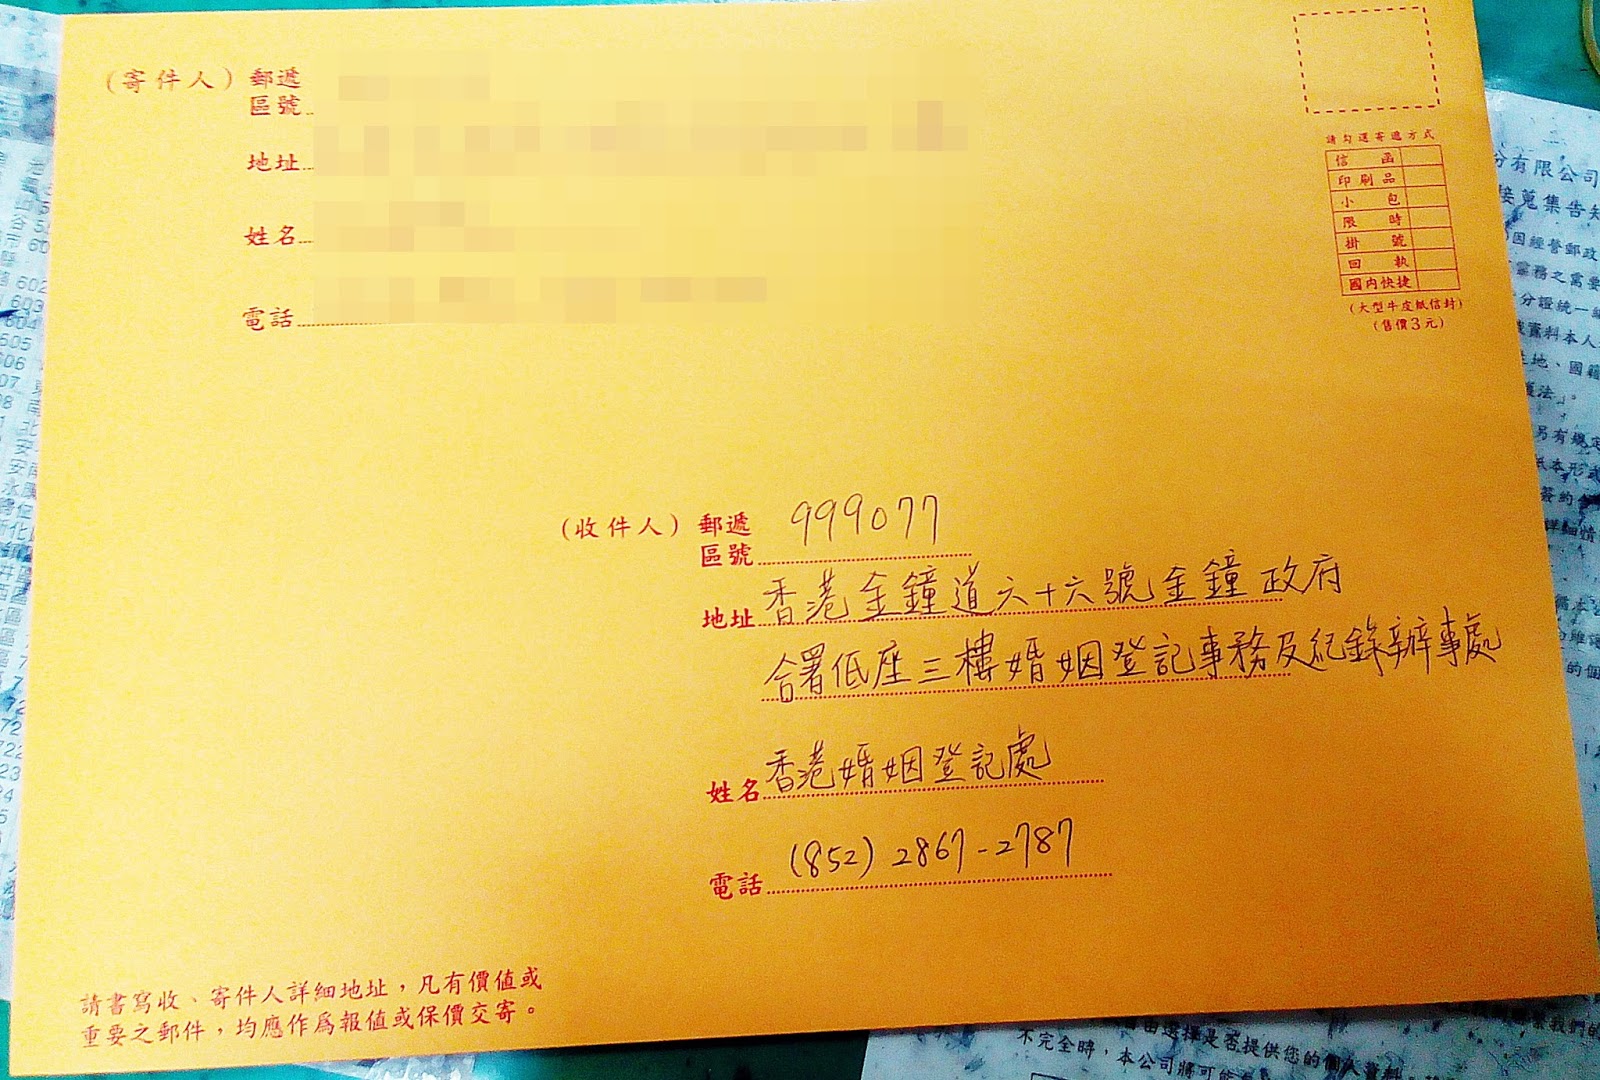 (寄件人) 郵遞
區號
地址
姓名
電話
請勾選寄遞方式
信函
印刷品
小包
限時
掛號
回執
國內快捷
(大型牛皮紙信封)
(售價3元)
(收件人) 郵遞
區號 999077
地址 香港金鐘道六十六號金鐘政府
合署低座三樓婚姻登記事務及紀錄辦事處
姓名 香港婚姻登記處
電話 (852) 2867-2787
請書寫收、寄件人詳細地址,凡有價值或
重要之郵件,均應作為報值或保價交寄。
份有限公司
接蒐集告知
因經營郵政
業務之需要
分證統一編
料本人
地、國籍
護法」。
另有規定
紙本形式
簽約
詳細情
602
603
604
605
606
選擇是否提供您的個人資料
不完全時,本公司將可能